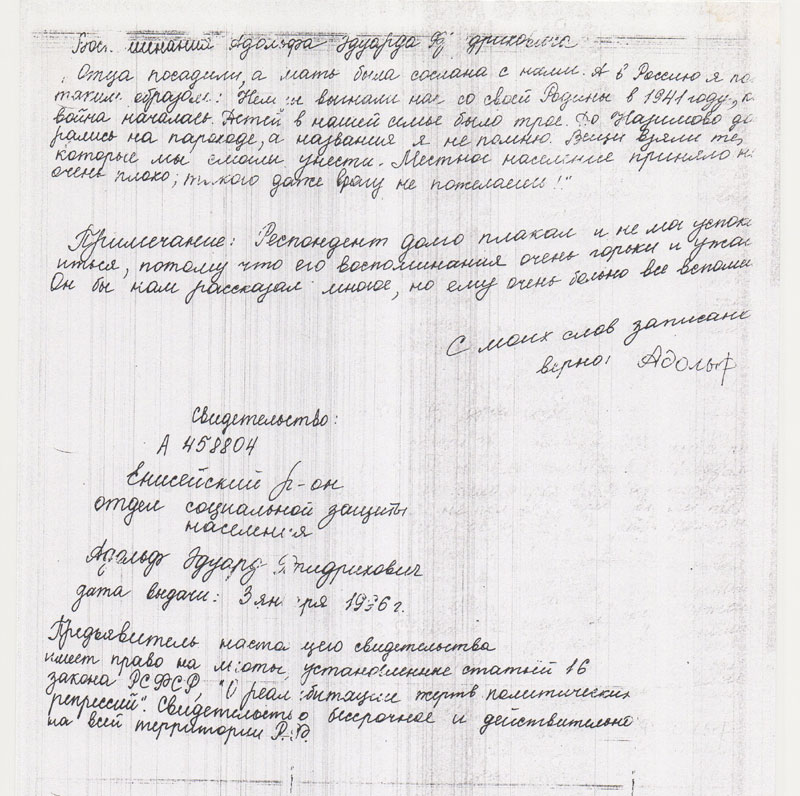 Адольфа Эдуарда
Отца посадили, а мать была сослана с нами. А в Россию я по
таким образом: Немцы выгнали нас со своей Родины в 1941 году, к
война началась. Детей в нашей семье было трое. До Назимово до
рались на пароходе, а названия я не помню. Вещи взяли те,
которые мы смогли унести. Местное население приняло н
очень плохо; такого даже врагу не пожелаешь!"
Примечание: Респондент долго плакал и не мог успок
иться, потому что его воспоминания очень горьки и ужас
Он бы нам рассказал многое, но ему очень больно все вспоми
С моих слов записано
верно: Адольф
Свидетельство:
А 458804
Енисейский р-он
отдел социальной защиты
населения
Адольф Эдуард Фридрихович
дата выдачи: 3 января
Предъявитель настоящего свидетельства
имеет право на льготы, установленные статьёй 16
закона РСФСР, "О реабилитации жертв политических
репрессий". Свидетельство бессрочное и действительно
на всей территории Р.Ф.